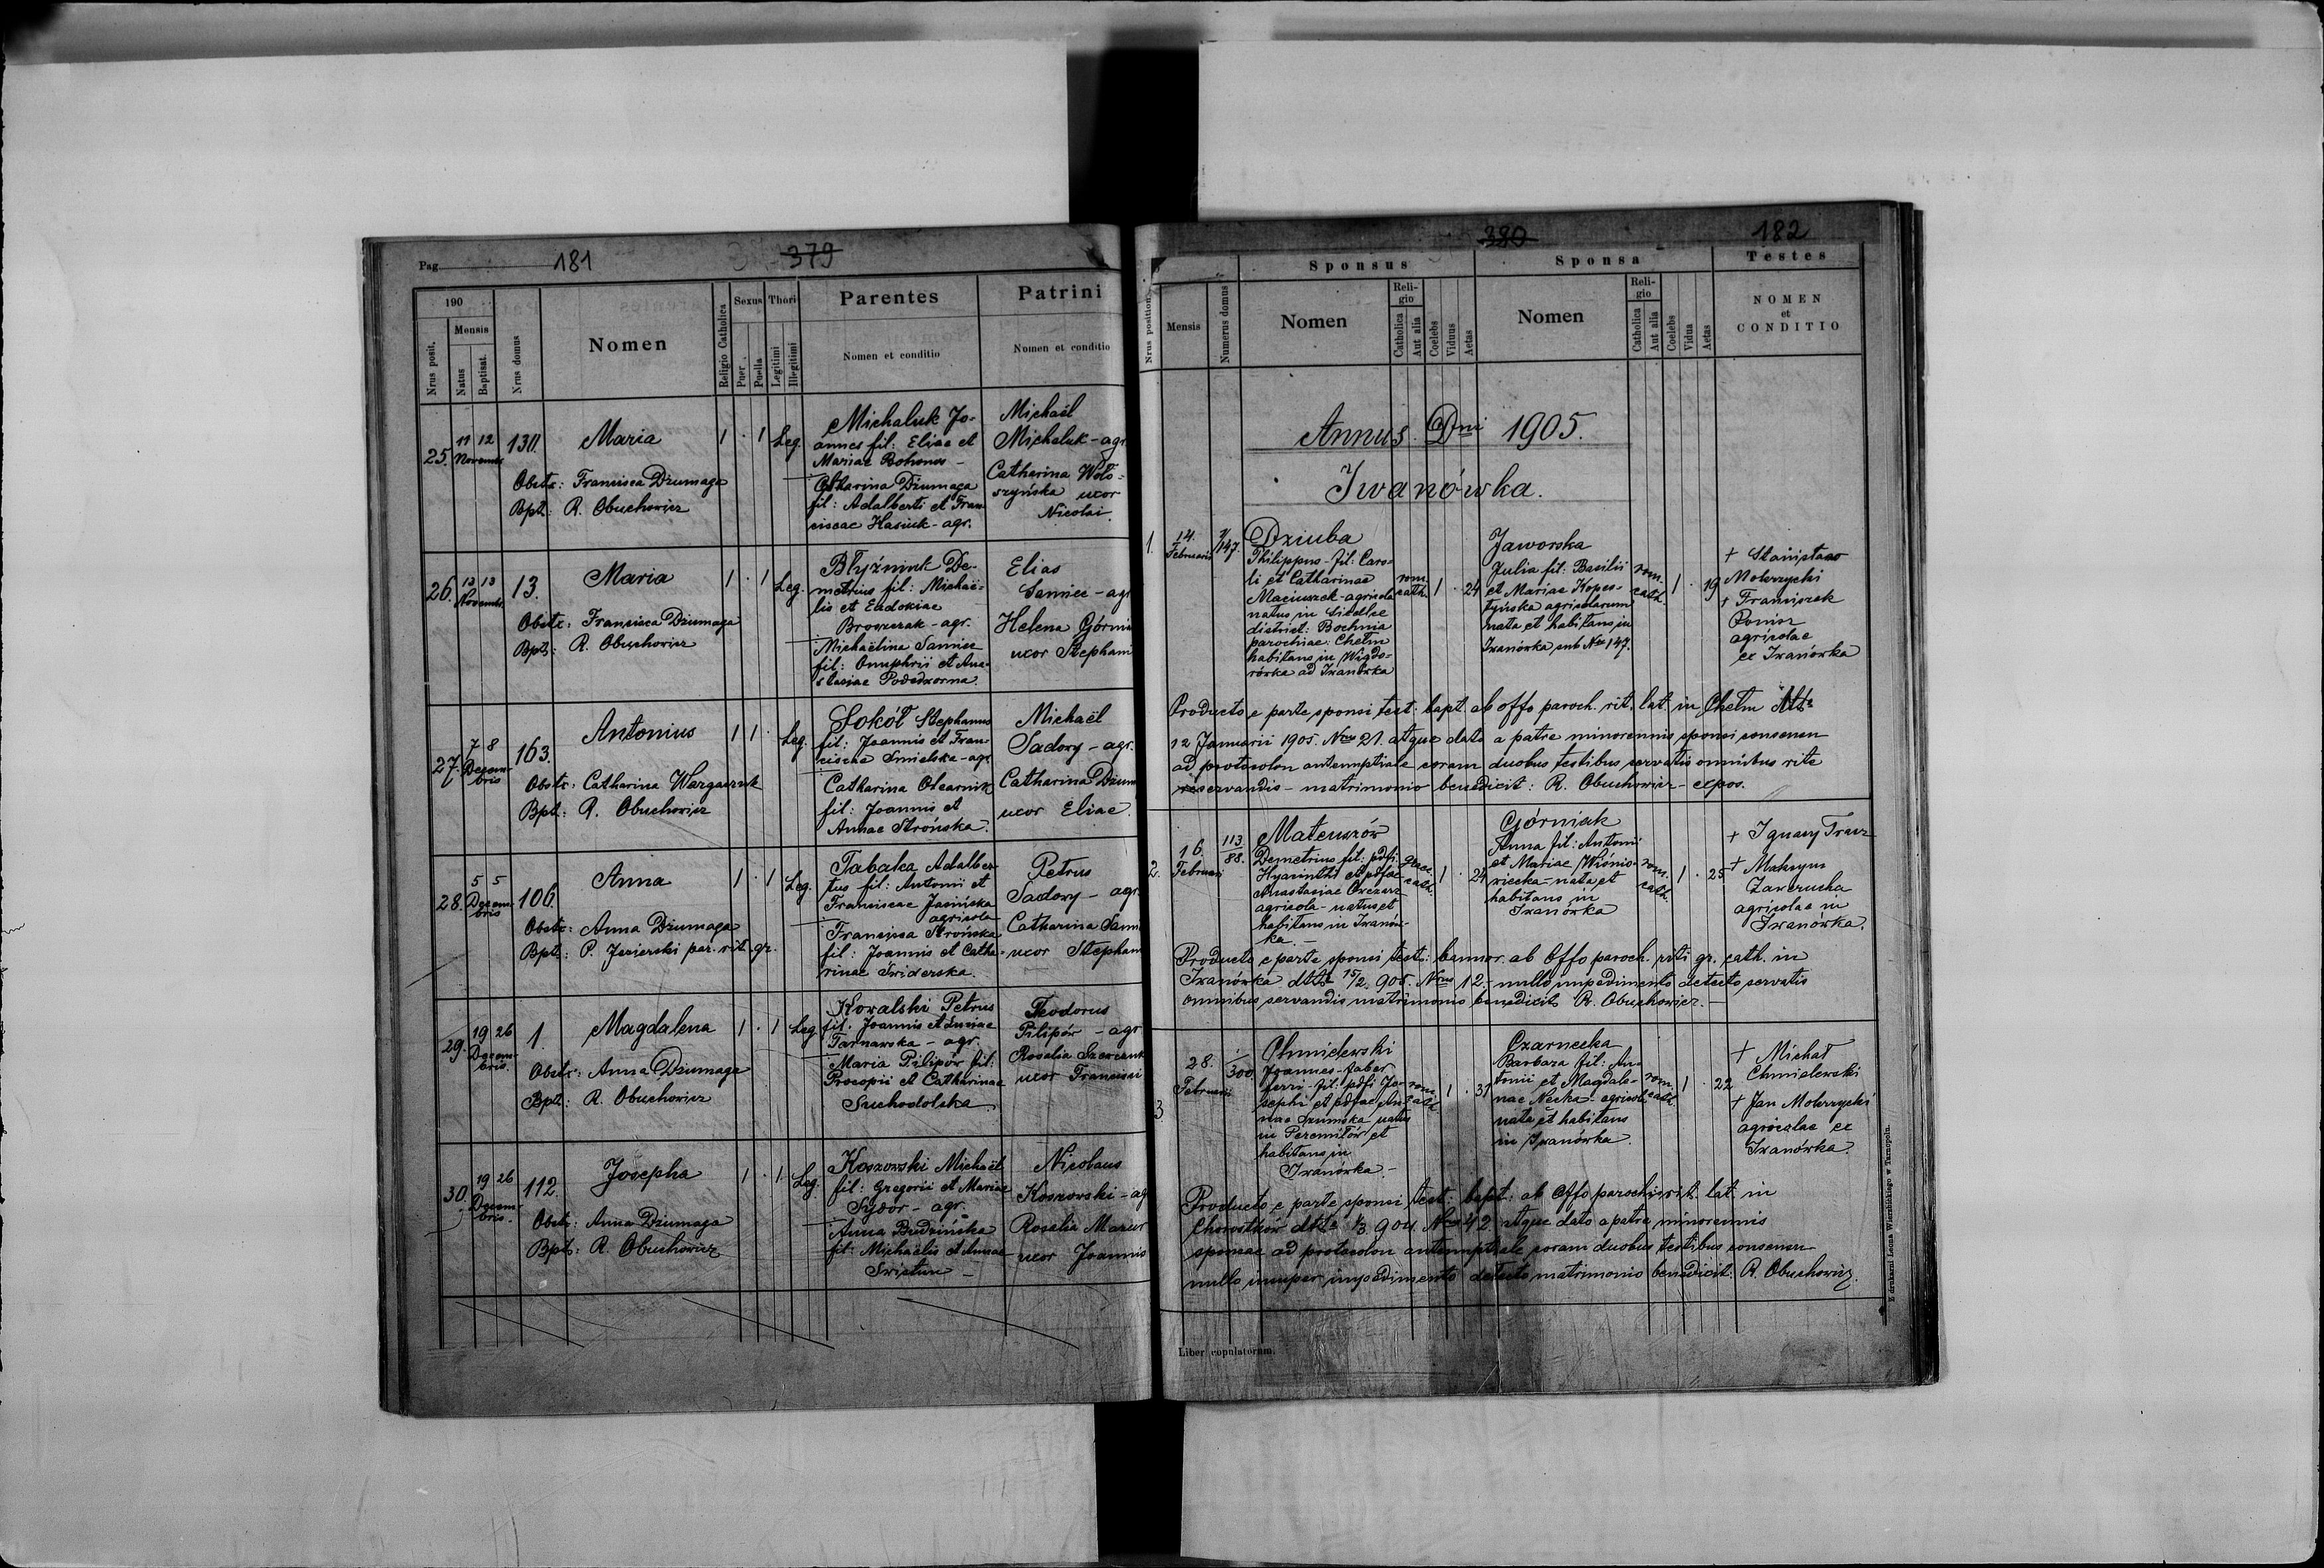 Pag. 181 379
190
Nrus posit.
Mensis
Natus
Baptisat.
Nrus domus
Nomen
Religio Catholica
Sexus
Puer
Puella
Thori
Legitimi
Illegitimi
Parentes
Nomen et conditio
Patrini
Nomen et conditio
25. 11 12 Novembr. 130. Maria 1 . 1 Leg.
Obstr: Francisca Dziumaga
Bpt: R. Obuchowicz
Michaluk Jo-
annes fil: Eliae et
Mariae Bohonos -
Catharina Dziumaga
fil: Adalberti et Fran-
ciscae Hasiuk - agr.
Michaël
Michaluk - agr
Catharina Woło-
szyńska uxor
Nicolai.
26. 13 13 Novembr. 13. Maria 1 . 1 Leg.
Obstr: Francisca Dziumaga
Bpt: R. Obuchowicz
Błyźniuk De-
metrius fil: Michaë-
lis et Eudokiae
Broszczak - agr.
Michaëlina Sanniec
fil: Onuphrii et Ana-
stasiae Podedworna.
Elias
Sanniec - agr
Helena Górnia
uxor Stephani
27. 7 8 Decem-
bris 163. Antonius 1 1 . Leg.
Obstr: Catharina Wargaczuk
Bpt: R. Obuchowicz
Sokół Stephanus
fil: Joannis et Fran-
ciscae Smielska - agr.
Catharina Olearnik
fil: Joannis et
Annae Strońska.
Michaël
Sadowy - agr.
Catharina Dzium
uxor Eliae.
28. 5 5 Decem-
bris 106. Anna 1 . 1 Leg.
Obstr: Anna Dziumaga
Bpt: P. Jezierski par. rit. gr.
Tabaka Adalber-
tus fil: Antonii et
Franciscae Jasińska
agricola
Francisca Strońska
fil: Joannis et Catha-
rinae Świderska.
Petrus
Sadowy - agr.
Catharina Sanni
uxor Stephani
29. 19 26 Decem-
bris. 1. Magdalena 1 . 1 Leg
Obstr: Anna Dziumaga
Bpt: R. Obuchowicz
Kowalski Petrus
fil. Joannis et Luciae
Tarnawska - agr.
Maria Pilipów fil:
Procopii et Catharinae
Suchodolska.
Teodorus
Pilipów - agr
Rosalia Szewczuk
uxor Francisci
30. 19 26 Decem-
bris. 112. Josepha 1 . 1 Leg.
Obstr: Anna Dziumaga
Bpt: R. Obuchowicz
Koszowski Michaël
fil: Gregorii et Mariae
Sydor - agr.
Anna Budzińska
fil: Michaëlis et Annae
Swistun -
Nicolaus
Koszowski - ag
Rosalia Mazur
uxor Joannis
380 182
Nrus position.
Mensis
Numerus domus
Sponsus
Nomen
Reli-
gio
Catholica
Aut alia
Coelebs
Viduus
Aetas
Sponsa
Nomen
Reli-
gio
Catholica
Aut alia
Coelebs
Vidua
Aetas
Testes
NOMEN
et
CONDITIO
Annus Dni 1905.
Iwanówka.
1. 14. Februarii 147.
Dziuba
Philippus - fil: Caro-
li et Catharinae
Maciuszek - agricola
natus in Siedlce
district: Bochnia
parochiae: Chełm
habitans in Wigdo-
rówka ad Iwanówka
rom. cath. 1 . 24
Jaworska
Julia fil: Basilii
et Mariae Kopes-
tyńska agricolarum
nata et habitans in
Iwanówka sub Nro 147.
rom. cath. 1 . 19
+ Stanisław
Mokrzycki
+ Franciszek
agricolae
ex Iwanówka
Producto e parte sponsi test: bapt. ab offo paroch. rit. lat. in Chełm
12 Januarii 1905. Nro 21. atque dato a patre minorennis sponsi consensu
ad protocolon antenuptiale coram duobus testibus servatis omnibus rite
servandis - matrimonio benedixit: R. Obuchowicz - expos.
2. 16. Februarii 113/88.
Mateuszów
Demetrius fil: pdfi
Hyacinthi et pdfae
Anastasiae
agricola - natus et
habitans in Iwanów-
ka. -
graec. cath. 1 . 24
Górniak
Anna fil: Antonii
et Mariae Wiśnio-
wiecka - nata et
habitans in
Iwanówka
rom. cath. 1 . 25
+ Ignacy Tracz
+ Maksym
Zawerucha
agricolae in
Iwanówka.
Producto e parte sponsi test: bannor. ab Offo paroch. riti gr. cath. in
Iwanówka dtto 15/2 905. Nro 12. - nullo impedimento detecto servatis
omnibus servandis matrimonio benedixit R. Obuchowicz. -
3. 28. Februarii 1/300
Chmielewski
Joannes - faber
ferri - fil: pdfi Jo-
sephi et pdfae An-
nae Szumska natus
in Peremiłów et
habitans in
Iwanówka -
rom. cath. 1 . 31
Czarnecka
Barbara fil: An-
tonii et Magdale-
nae Necka - agricol.
nata et habitans
in Iwanówka.
rom. cath. 1 . 22
+ Michał
Chmielewski
+ Jan Mokrzycki
agricolae ex
Iwanówka.
Producto e parte sponsi test: bapt: ab Offo parochi rit. lat. in
Chorostków dtto 1/3 904 Nro 42 atque dato a patre minorennis
sponsae ad protocolon antenuptiale coram duobus testibus consensu
nullo insuper impedimento detecto matrimonio benedixit: R. Obuchowicz.
Liber copulatorum.
Z drukarni Leona Wierzbickiego w Tarnopolu.